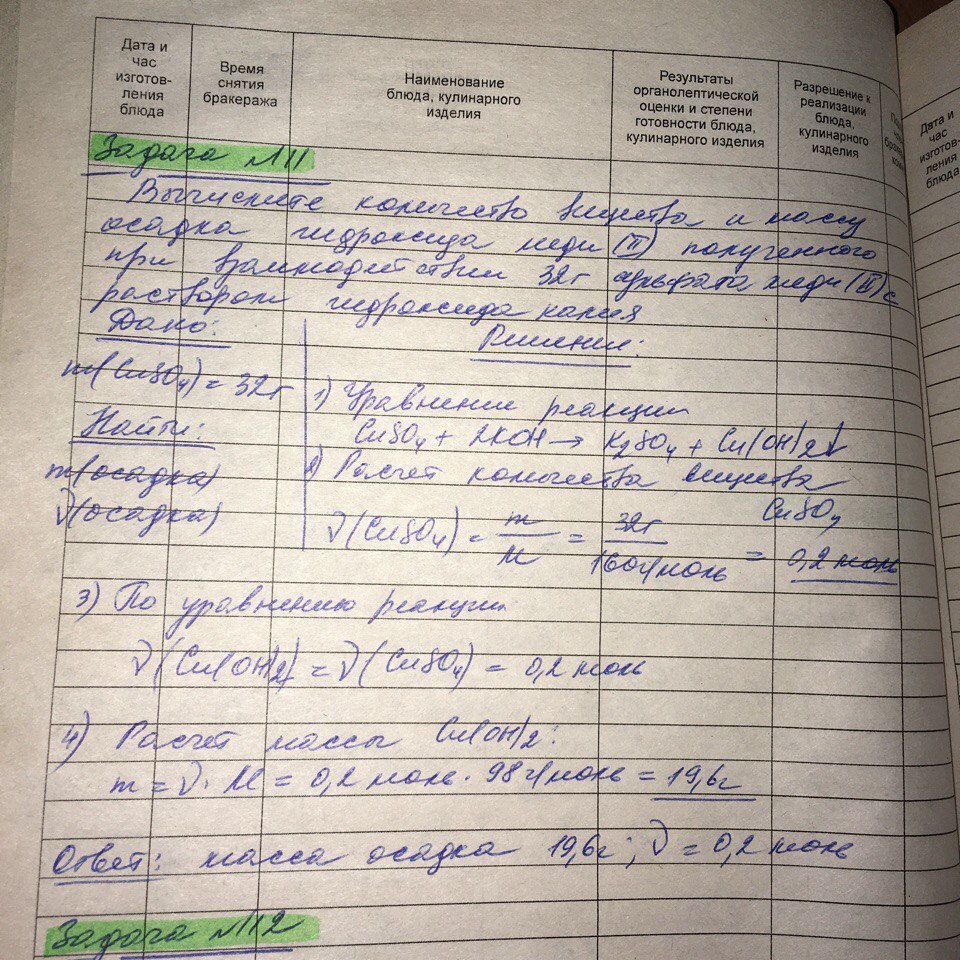 Дата и час изготов- ления блюда
Время снятия бракеража
Наименование блюда, кулинарного изделия
Результаты органолептической оценки и степени готовности блюда, кулинарного изделия
Разрешение к реализации блюда, кулинарного изделия
Дата и час изготов- ления блюда
Задача №11
Вычислите количество вещества и массу
осадка гидроксида меди (II) полученного
при взаимодействии 32г сульфата меди (II) с
раствором гидроксида калия
Дано:
Решение:
m(CuSO4) = 32г
1) Уравнение реакции
Найти:
CuSO4 + 2KOH → K2SO4 + Cu(OH)2↓
m(осадка)
2) Расчет количества вещества
CuSO4
ν(осадка)
ν(CuSO4) = m/M = 32г/160г/моль = 0,2 моль
3) По уравнению реакции
ν(Cu(OH)2) = ν(CuSO4) = 0,2 моль
4) Расчет массы Cu(OH)2:
m = ν · M = 0,2 моль · 98 г/моль = 19,6г
Ответ: масса осадка 19,6г; ν = 0,2 моль
Задача №12